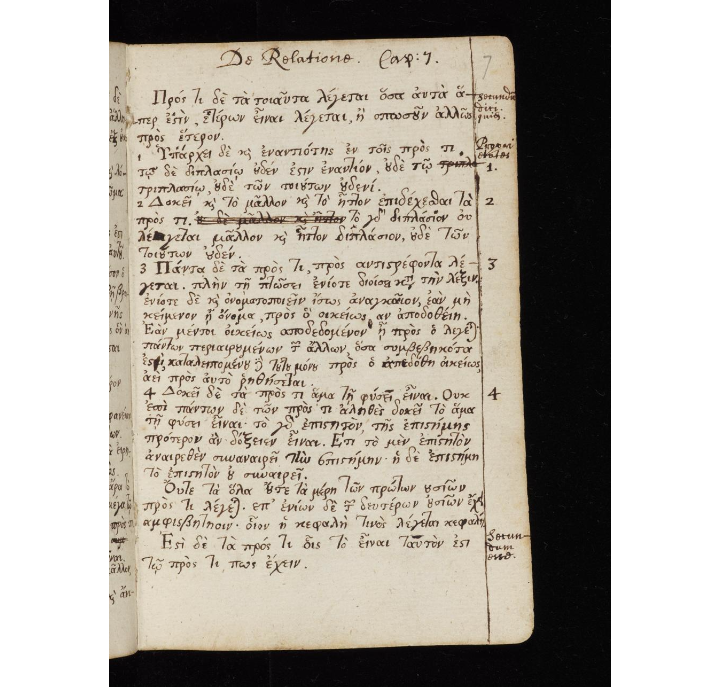 De Relatione. Cap: 7.
7
Πρός τι δὲ τὰ τοιαῦτα λέγεται ὅσα ἀυτὰ ἅ-
περ ἐςὶν, ἑτέρων εἶναι λέγεται, ἢ οπωσȣ̃ν ἄλλως
πρὸς ἕτερον.
secundum
dici
1 Υπάρχει δὲ κ̀ ἐναντιότης ἐν τοῖς πρὸς τι.
τῷ δὲ διπλασίῳ ȣδέν ἐςιν ἐναντίον, ȣδὲ τῷ
τριπλασίῳ, ȣδὲ τῶν τοιȣ́των ȣδενί.
1.
2 Δοκεῖ κ̀ τὸ μᾶλλον κ̀ τὸ ἧττον επιδέχεσθαι τὰ
πρὸς τι. τὸ γὸ διπλάσιον ου
λέγεται μᾶλλον κ̀ ἧττον διπλάσιον, ȣδὲ τῶν
τοιȣ́των ȣδέν.
2
3 Πάντα δὲ τὰ πρὸς τι, πρὸς αντιςρέφοντα λέ-
γεται. πλὴν τῇ πτώσει ἐνίοτε διοίσει κατὰ τὴν λέξιν,
ἐνίοτε δὲ κ̀ ονοματοποιεῖν ἴσως αναγκαῖον, ἐὰν μὴ
κείμενον ᾖ ὄνομα, πρὸς ὃ οἰκείως αν αποδοθείη.
Εὰν μέντοι οἰκείως αποδεδομένον ᾖ πρὸς ὃ λέγεται
πάντων περιαιρȣμένων τῶν ἄλλων, ὅσα συμβεβηκότα
καταλειπομένȣ τȣ́τȣ μόνȣ πρὸς ὃ απεδόθη οικείως,
ἀεὶ πρὸς αυτὸ ῥηθήσεται.
3
4 Δοκεῖ δὲ τὰ πρὸς τι ἅμα τῇ φύσει εἶναι. Ουκ
ἐπὶ πάντων δὲ τῶν πρὸς τι ἀληθὲς δοκεῖ τὸ ἅμα
τῇ φύσει εἶναι· τὸ γὸ επιςητὸν, τῆς ἐπιςήμης
πρότερον ἂν δόξειεν εἶναι. Ετι τὸ μὲν επιςητὸν
ἀναιρεθὲν συναναιρεῖ τὴν ἐπιςήμην· ἡ δὲ ἐπιςήμη
τὸ επιςητὸν ȣ συναιρεῖ.
4
Οὔτε τὰ ὅλα ȣ́τε τὰ μέρη τῶν πρώτων ȣσιῶν
πρὸς τι λέγεται. επ' ενίων δὲ τῶν δευτέρων ȣσιῶν ἔχει
αμφισβήτησιν· οἷον ἡ κεφαλὴ τινὸς λέγεται κεφαλή.
Εςὶ δὲ τὰ πρός τι οἷς τὸ εἶναι ταυτόν ἐςι
τῷ πρὸς τι πως ἔχειν.
Secun-
dum
esse.